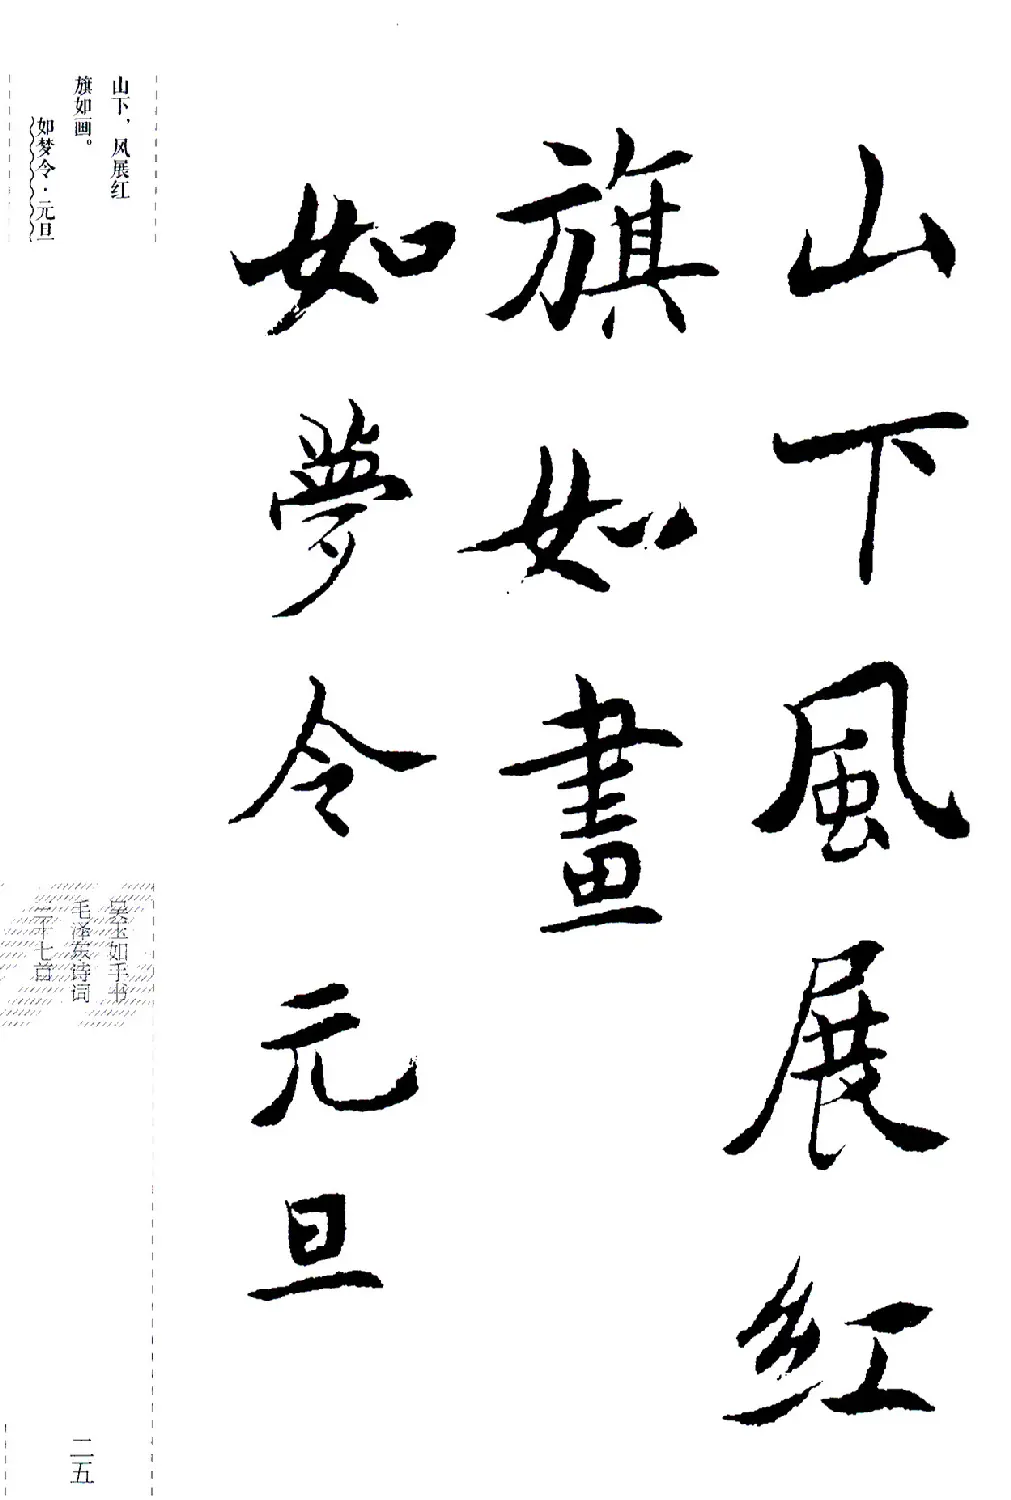 山下風展紅
旗如畫
如夢令元旦
山下，风展红
旗如画。
如梦令·元旦
吴玉如手书
毛泽东诗词
三十七首
二五